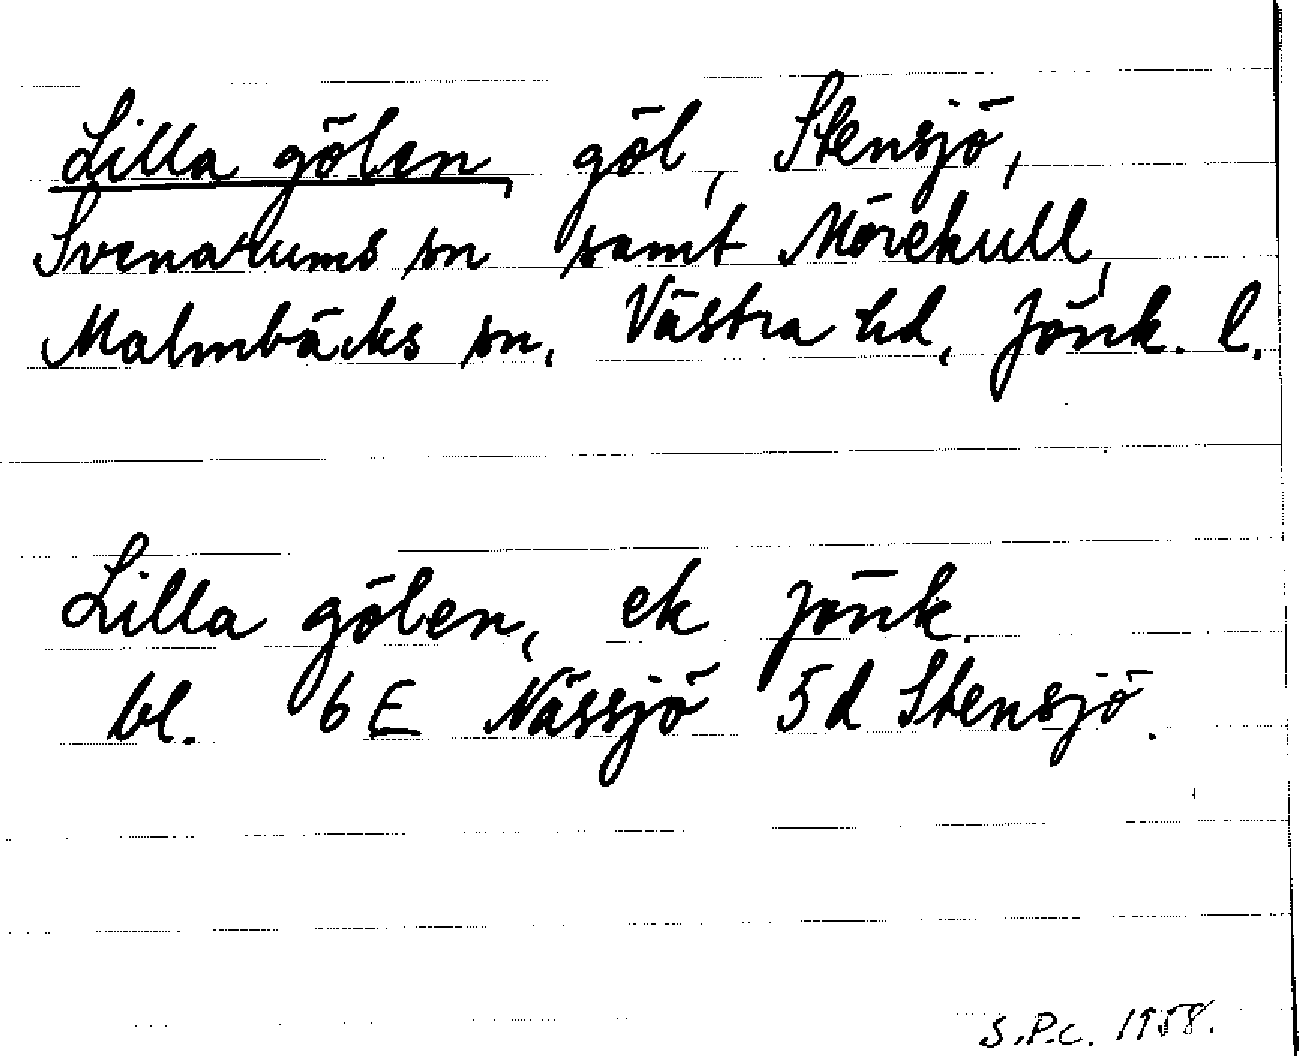 Lilla gölen, göl, Stensjö,
Svenarums sn samt Mörekull,
Malmbäcks sn, Västra hd, Jönk. l.
Lilla gölen, ek Jönk.
bl. 6 E Nässjö 5d Stensjö.
S.P.C. 1958.